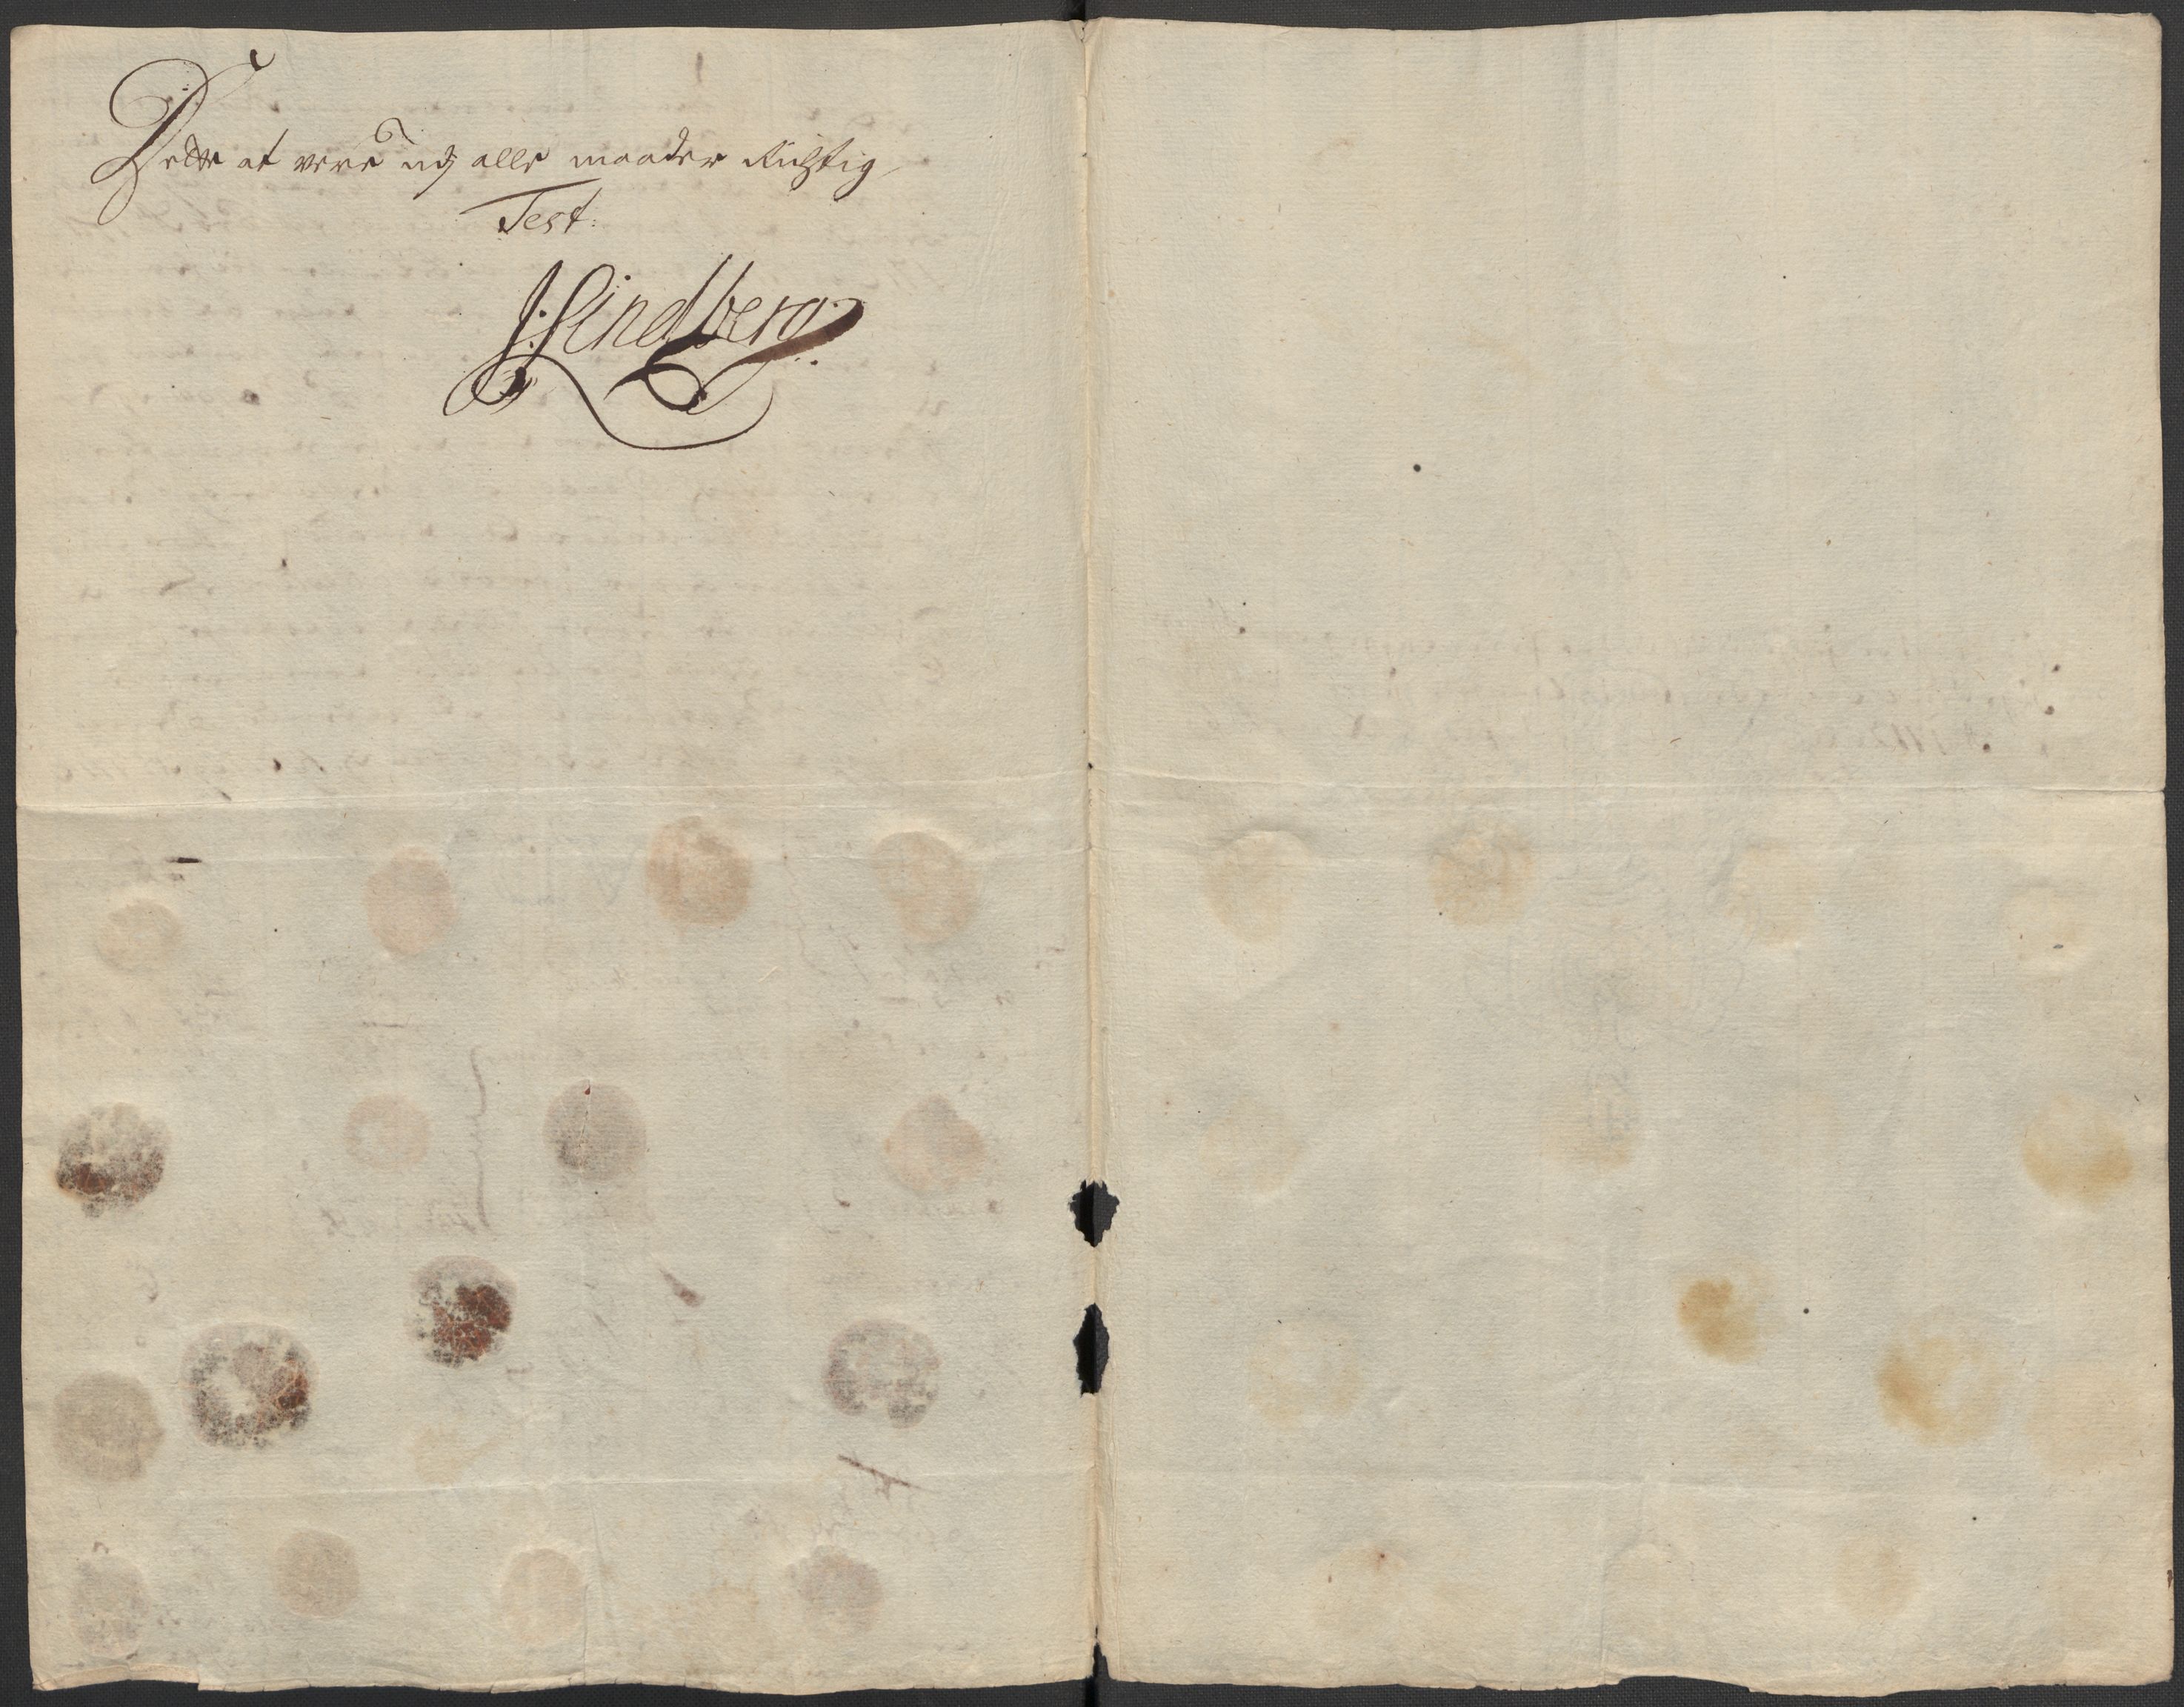 Dette at vere udj alle maader Richtig
Test:
J: Lindberg